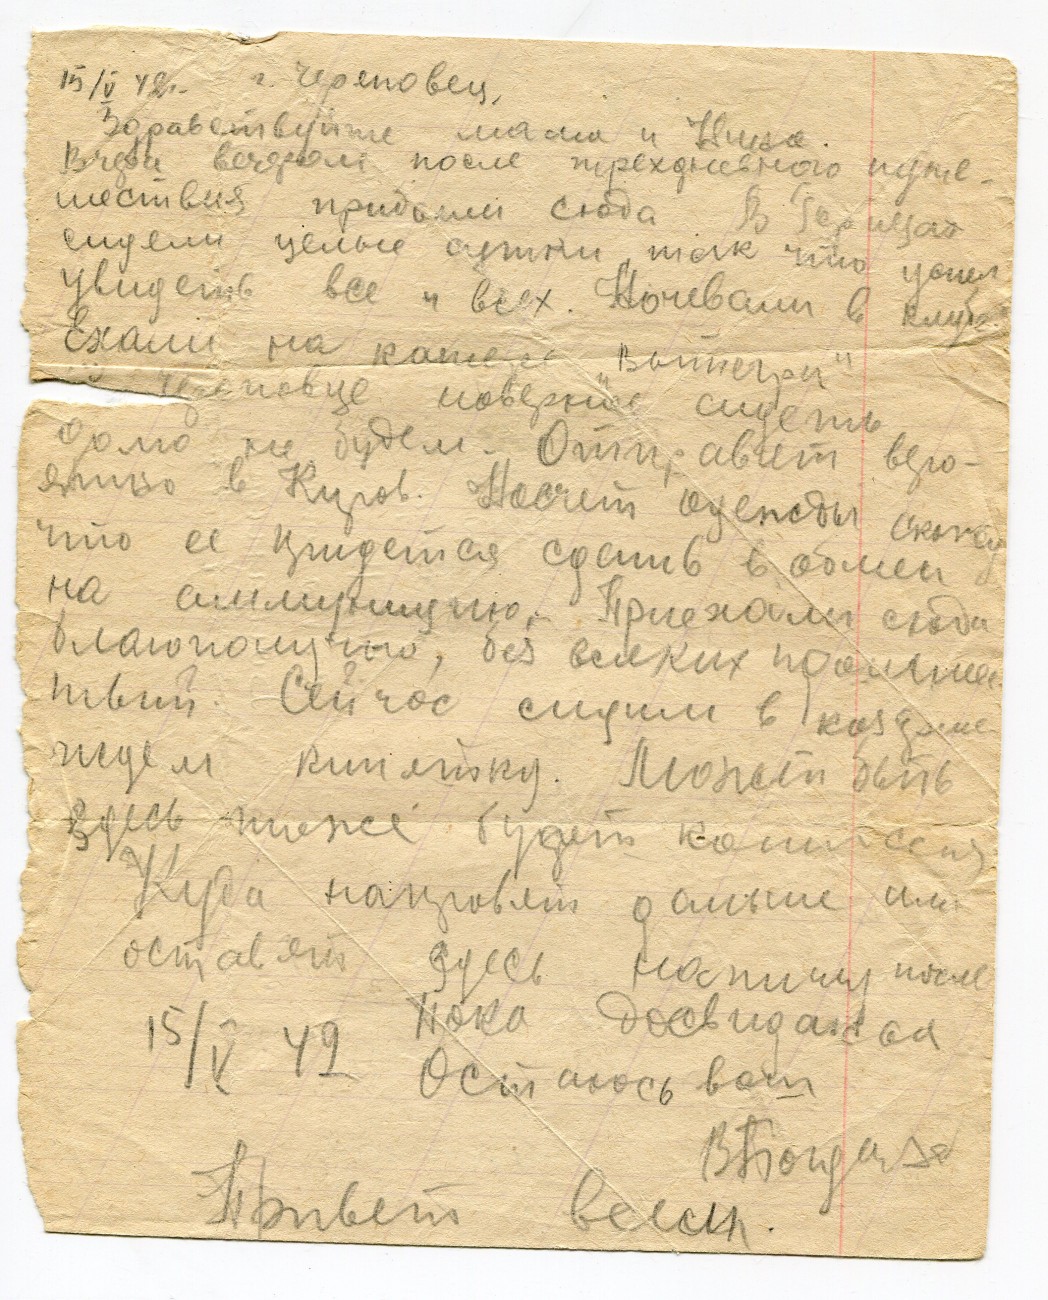 15/V 42г. г. Череповец,
Здравствуйте мама и Нина.
Вчера вечером после трехдневного путе-
шествия прибыли сюда В
сидели целые сутки, так что успел
увидеть все и всех. Ночевали в клубе
Ехали на катере "Вытегра"
В Череповце наверное сидеть
долго не будем. Отправят веро-
ятно в Киров. Насчет одежды скажу
что ее придется сдать в обмен
на аммуницию. Приехали сюда
благополучно, без всяких происшес-
твий. Сейчас сидим в казарме
ждем кипятку. Может быть
здесь тоже будет комиссия
Куда направят дальше или
оставят здесь напишу после
Пока досвидания
15/V 42 Остаюсь ваш
Привет всем.